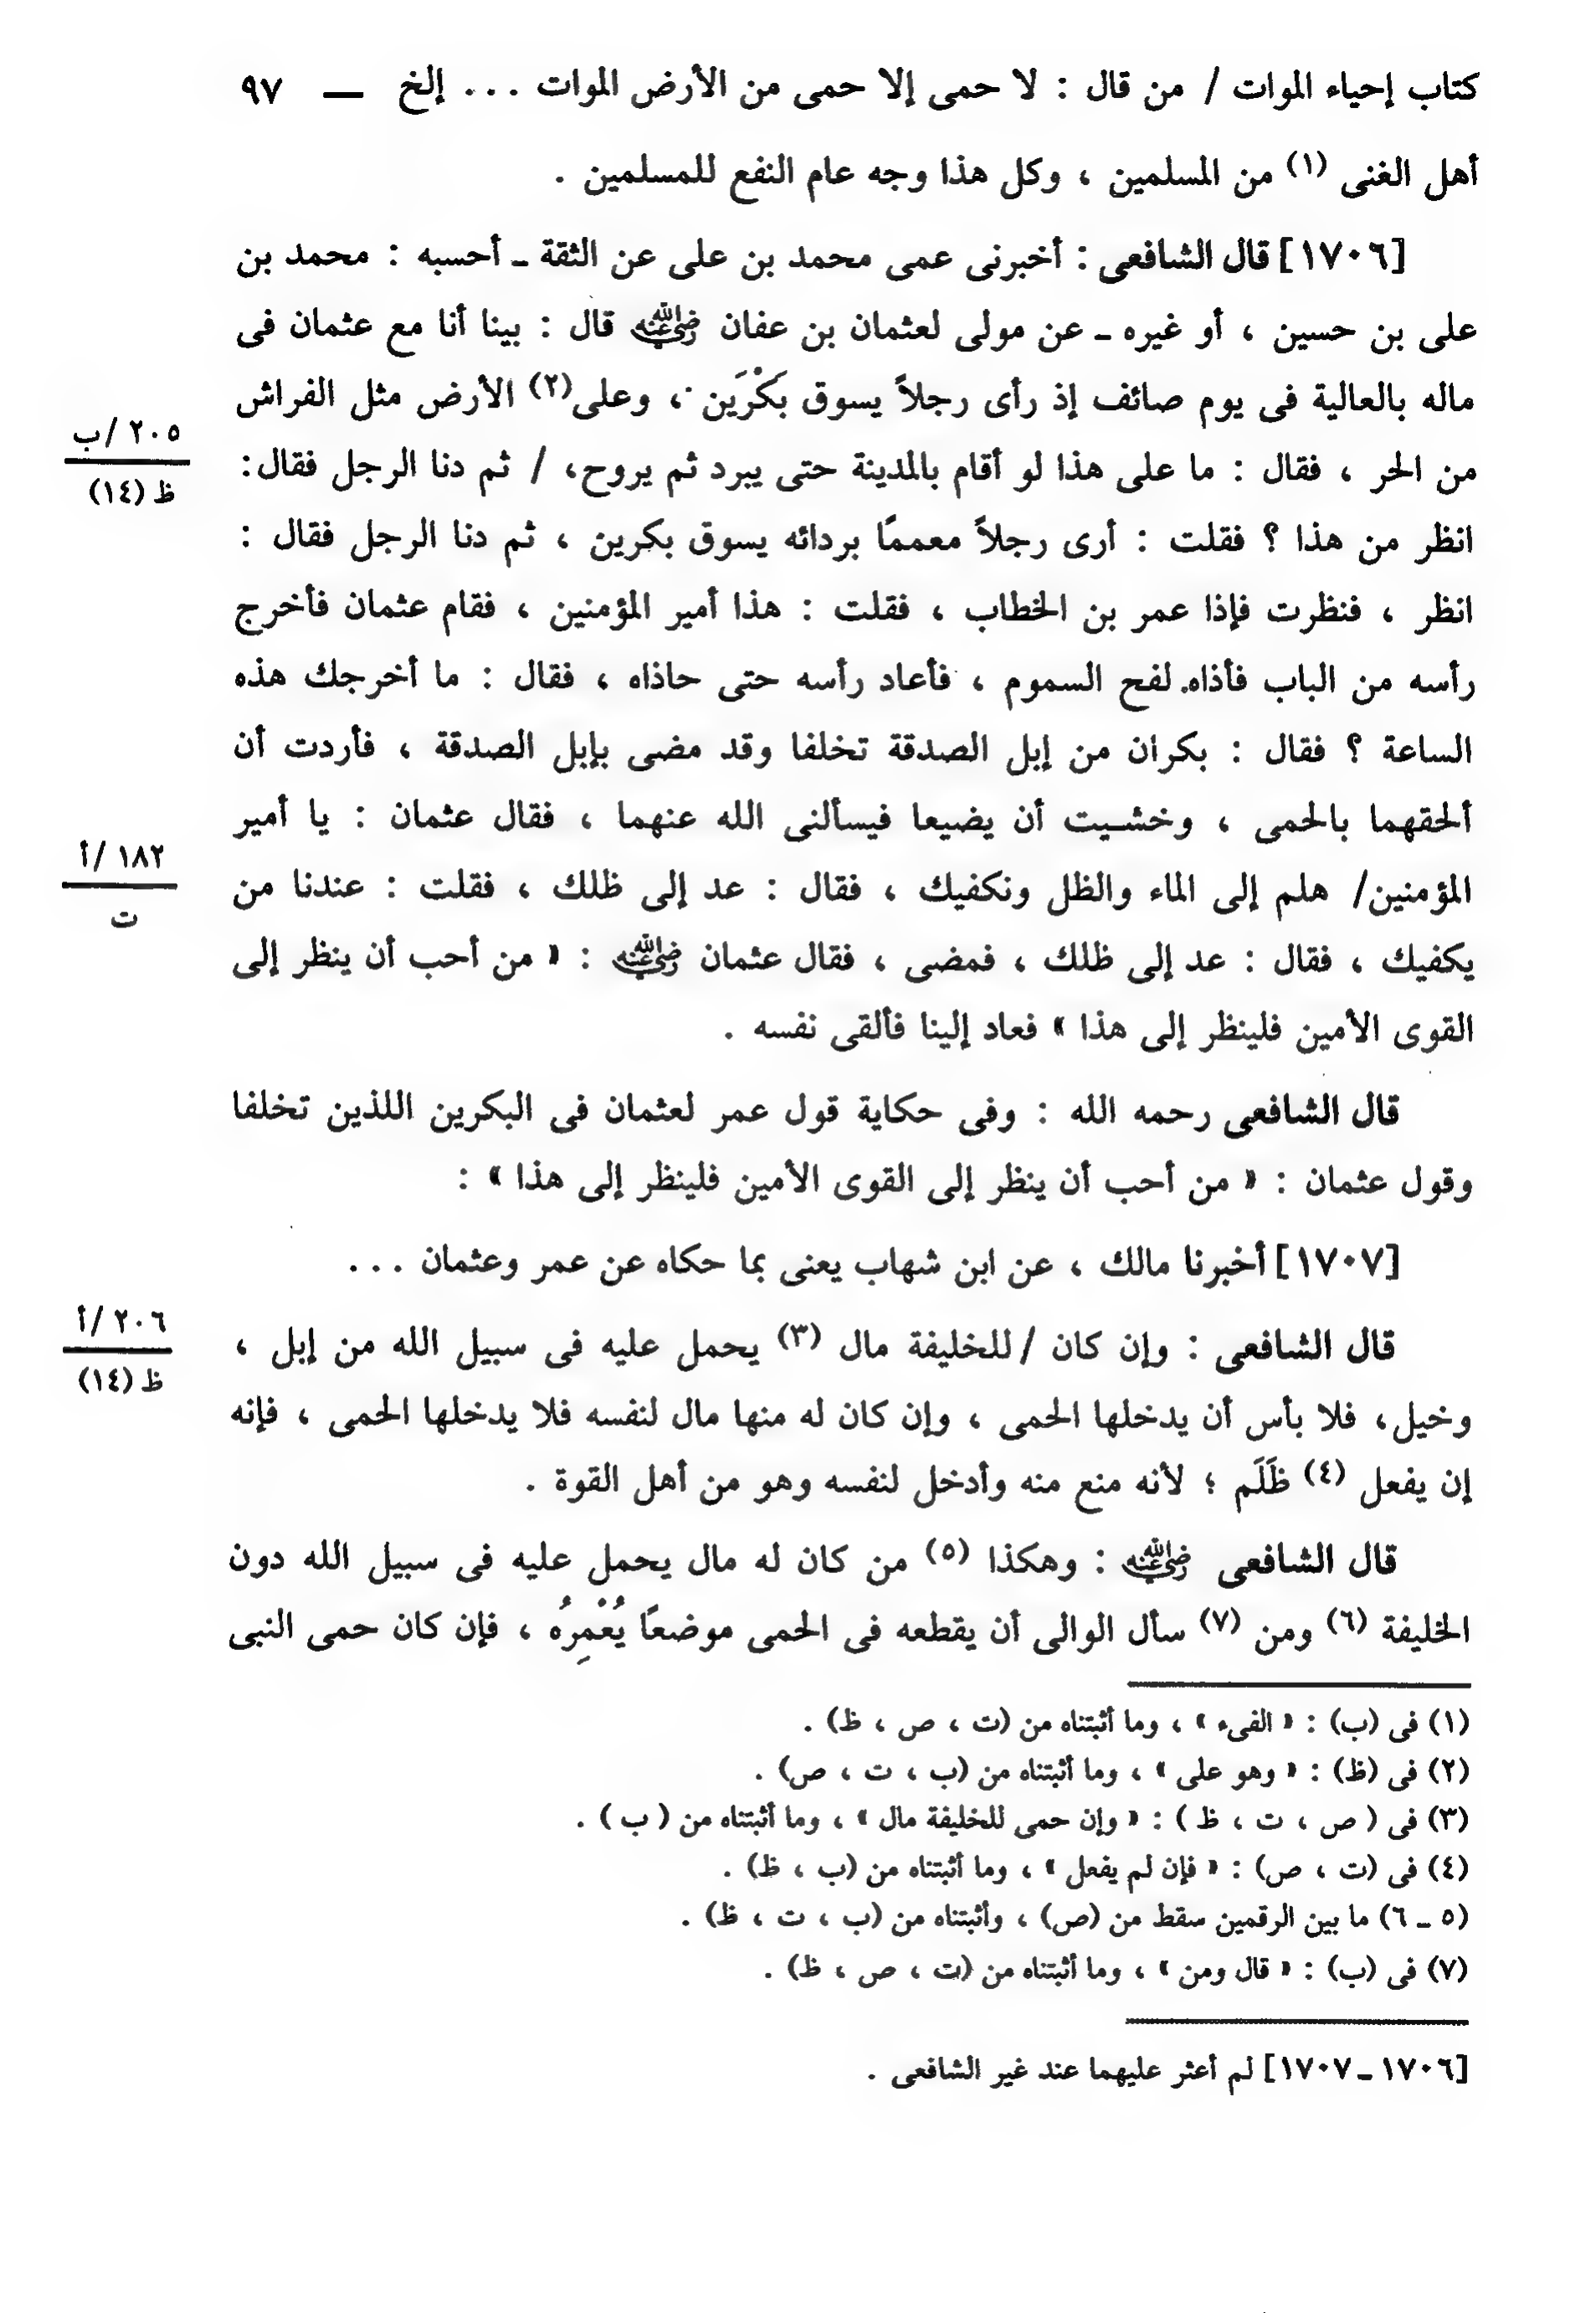 كتاب إحياء الموات / من قال : لا حمى إلا حمى من الأرض الموات . . . إلخ — ٩٧
أهل الغنى (١) من المسلمين ، وكل هذا وجه عام النفع للمسلمين .
[١٧٠٦] قال الشافعى : أخبرنى عمى محمد بن على عن الثقة ـ أحسبه : محمد بن
على بن حسين ، أو غيره ـ عن مولى لعثمان بن عفان رضي الله عنه قال : بينا أنا مع عثمان فى
ماله بالعالية فى يوم صائف إذ رأى رجلاً يسوق بَكْرَين ، وعلى(٢) الأرض مثل الفراش
٢٠٥ /ب
ظ (١٤)
من الحر ، فقال : ما على هذا لو أقام بالمدينة حتى يبرد ثم يروح، / ثم دنا الرجل فقال:
انظر من هذا ؟ فقلت : أرى رجلاً معممًا بردائه يسوق بكرين ، ثم دنا الرجل فقال :
انظر ، فنظرت فإذا عمر بن الخطاب ، فقلت : هذا أمير المؤمنين ، فقام عثمان فأخرج
رأسه من الباب فأذاه لفح السموم ، فأعاد رأسه حتى حاذاه ، فقال : ما أخرجك هذه
الساعة ؟ فقال : بكران من إبل الصدقة تخلفا وقد مضى بإبل الصدقة ، فأردت أن
ألحقهما بالحمى ، وخشـيت أن يضيعا فيسألنى الله عنهما ، فقال عثمان : يا أمير
١٨٢ /أ
ت
المؤمنين/ هلم إلى الماء والظل ونكفيك ، فقال : عد إلى ظلك ، فقلت : عندنا من
يكفيك ، فقال : عد إلى ظلك ، فمضى ، فقال عثمان رضي الله عنه : « من أحب أن ينظر إلى
القوى الأمين فلينظر إلى هذا » فعاد إلينا فألقى نفسه .
قال الشافعى رحمه الله : وفى حكاية قول عمر لعثمان فى البكرين اللذين تخلفا
وقول عثمان : « من أحب أن ينظر إلى القوى الأمين فلينظر إلى هذا » :
[١٧٠٧] أخبرنا مالك ، عن ابن شهاب يعنى بما حكاه عن عمر وعثمان . . .
٢٠٦ /أ
ظ (١٤)
قال الشافعى : وإن كان / للخليفة مال (٣) يحمل عليه فى سبيل الله من إبل ،
وخيل، فلا بأس أن يدخلها الحمى ، وإن كان له منها مال لنفسه فلا يدخلها الحمى ، فإنه
إن يفعل (٤) ظَلَم ؛ لأنه منع منه وأدخل لنفسه وهو من أهل القوة .
قال الشافعى رضي الله عنه : وهكذا (٥) من كان له مال يحمل عليه فى سبيل الله دون
الخليفة (٦) ومن (٧) سأل الوالى أن يقطعه فى الحمى موضعًا يُعْمِرُه ، فإن كان حمى النبى
(١) فى (ب) : « الفىء » ، وما أثبتناه من (ت ، ص ، ظ) .
(٢) فى (ظ) : « وهو على » ، وما أثبتناه من (ب ، ت ، ص) .
(٣) فى ( ص ، ت ، ظ ) : « وإن حمى للخليفة مال » ، وما أثبتناه من ( ب ) .
(٤) فى (ت ، ص) : « فإن لم يفعل » ، وما أثبتناه من (ب ، ظ) .
(٥ ـ ٦) ما بين الرقمين سقط من (ص) ، وأثبتناه من (ب ، ت ، ظ) .
(٧) فى (ب) : « قال ومن » ، وما أثبتناه من (ت ، ص ، ظ) .
[١٧٠٦ ـ ١٧٠٧] لم أعثر عليهما عند غير الشافعى .